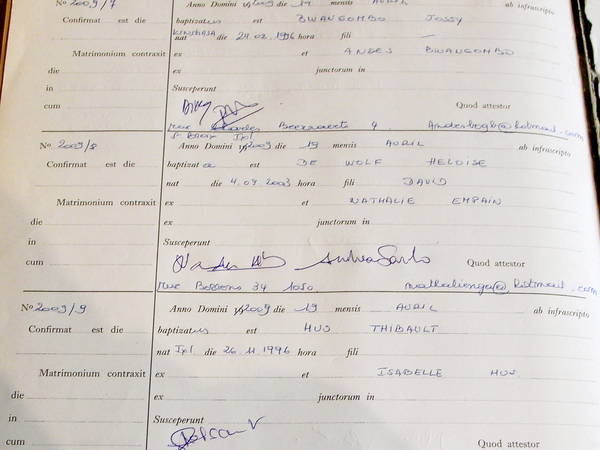 No 2009/7 Anno Domini 2009 die 19 mensis AVRIL ab infrascripto
Confirmat est die baptizatus est BWANGOMBO JOSSY
KINSHASA nat die 24 02 1996 hora fili —
Matrimonium contraxit ex et ANDES BWANGOMBO
die ex junctorum in
in Susceperunt
cum Quod attestor
rue Charles Beernaerts 4
No 2009/8 Anno Domini 2009 die 19 mensis AVRIL ab infrascripto
Confirmat est die baptizata est DE WOLF HELOISE
nat die 4.09 2003 fili DAVID
Matrimonium contraxit ex et NATHALIE EMPAIN
die ex junctorum in
in Susceperunt
cum Quod attestor
rue 34 1050 nathalienga@hotmail.com
No 2009/9 Anno Domini 2009 die 19 mensis AVRIL ab infrascripto
Confirmat est die baptizatus est HUS THIBAULT
nat Ixl die 26.11 1996 hora fili
Matrimonium contraxit ex et ISABELLE HUS
die ex junctorum in
in Susceperunt
cum Quod attestor